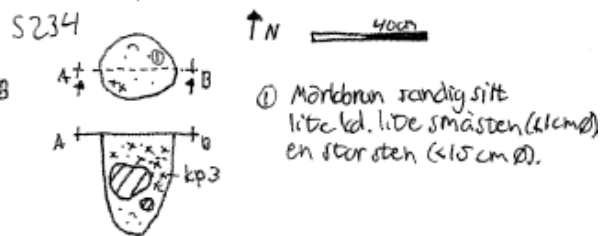 S234
N
40cm
①
A B
A B
kp3
① Mörkbrun sandig silt
lite kol. lite småsten (<1cmØ)
en stor sten (<15 cm Ø).